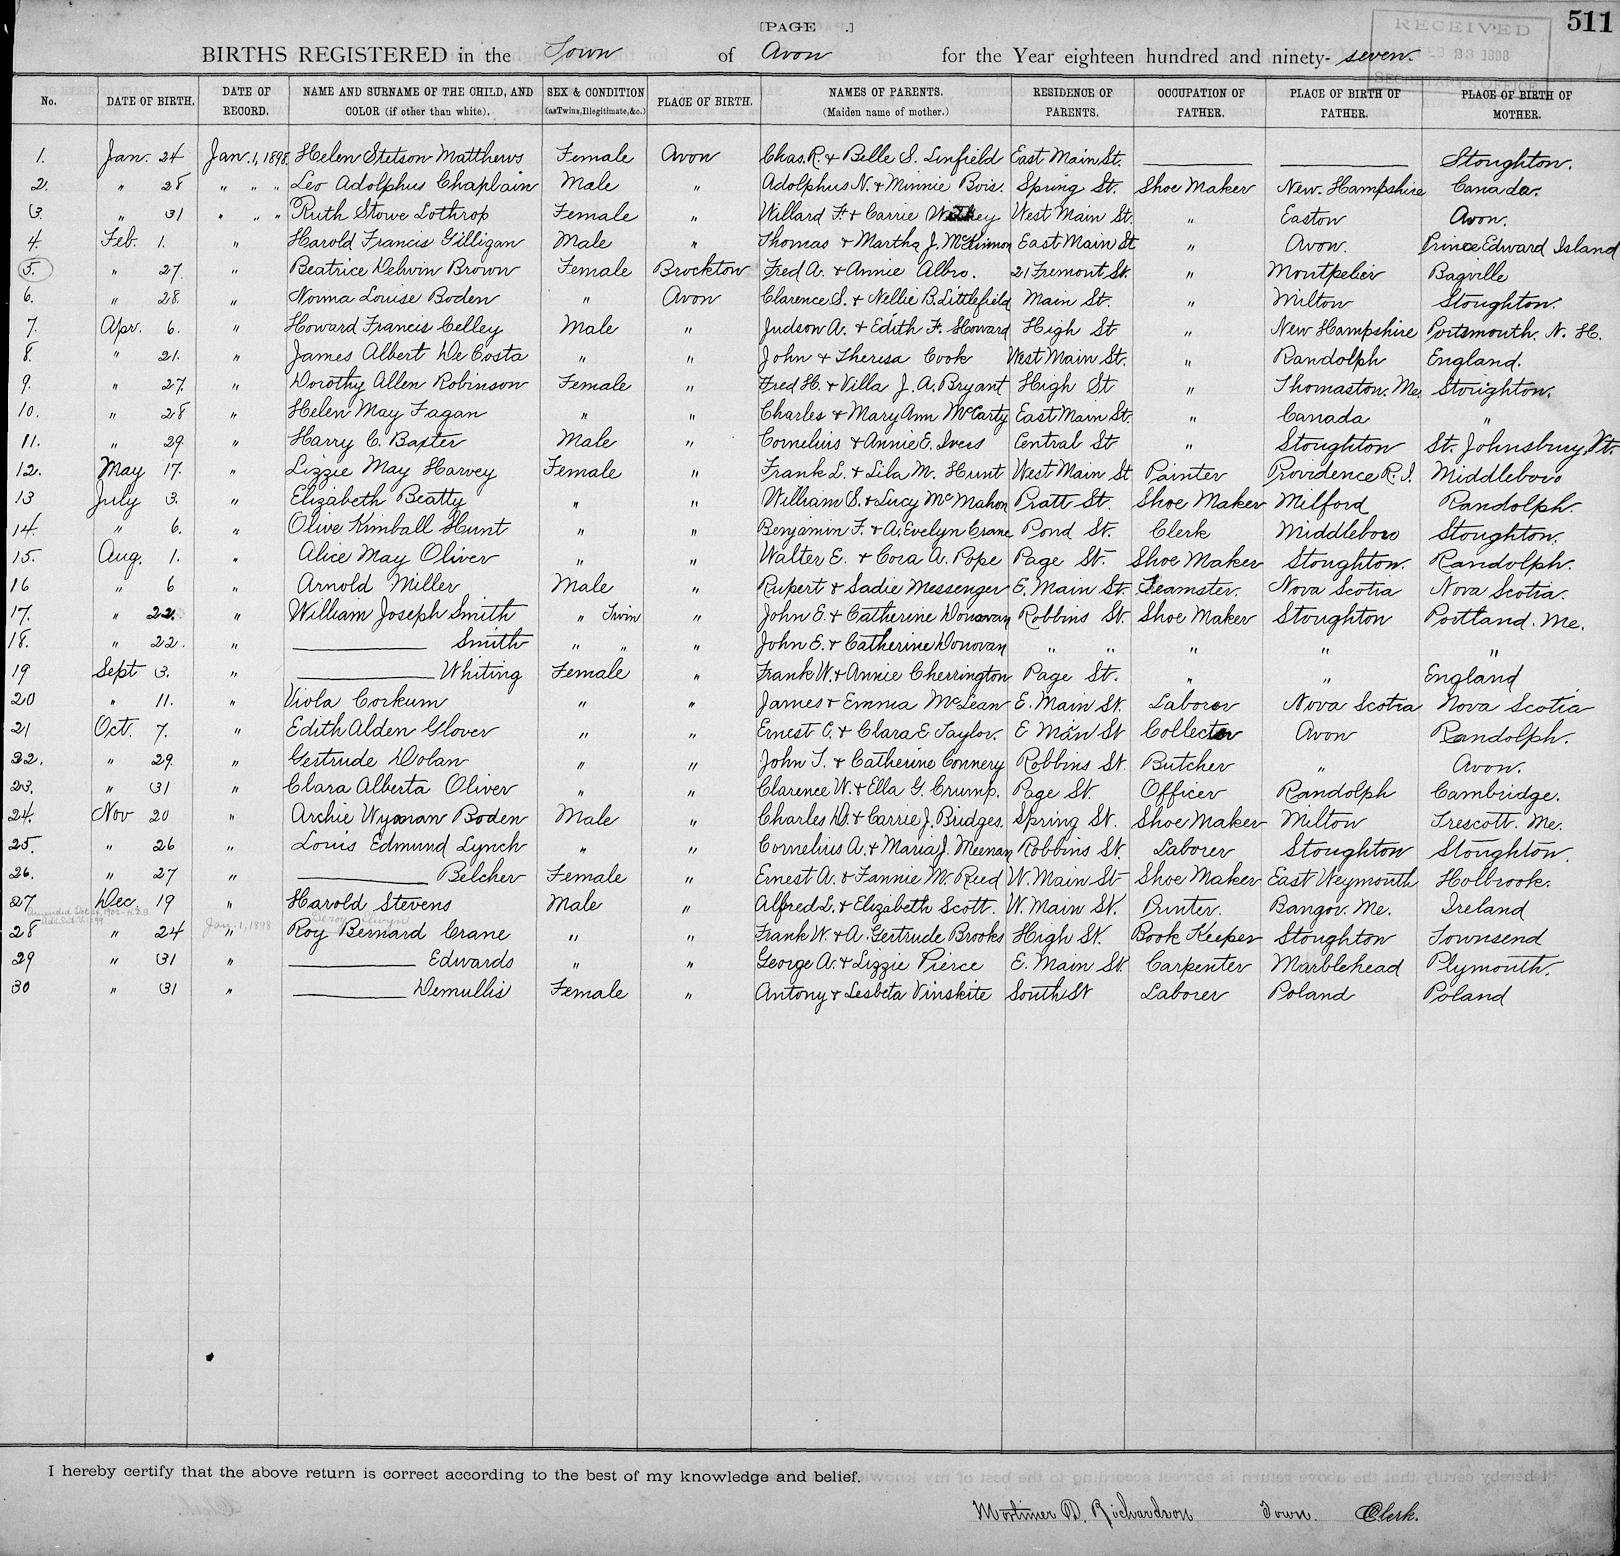 [PAGE .]
511
RECEIVED
BIRTHS REGISTERED in the Town of Avon for the Year eighteen hundred and ninety-seven.
No. DATE OF BIRTH. DATE OF RECORD. NAME AND SURNAME OF THE CHILD, AND COLOR (if other than white). SEX & CONDITION (as Twins, Illegitimate, &c.) PLACE OF BIRTH. NAMES OF PARENTS. (Maiden name of mother.) RESIDENCE OF PARENTS. OCCUPATION OF FATHER. PLACE OF BIRTH OF FATHER. PLACE OF BIRTH OF MOTHER.
1. Jan. 24 Jan. 1, 1898. Helen Stetson Matthews Female Avon Chas. R. & Belle S. Linfield East Main St. Stoughton.
2. " 28 " " " Leo Adolphus Chaplain Male " Adolphus N. & Minnie Bois. Spring St. Shoe Maker New. Hampshire Canada.
3. " 31 " " " Ruth Stowe Lothrop Female " Willard F. & Carrie West Main St. " Easton Avon.
4. Feb. 1. " Harold Francis Gilligan Male " Thomas & Martha J. McKinnon East Main St " Avon. Prince Edward Island
5. " 27. " Beatrice Delwin Brown Female Brockton Fred A. & Annie Albro. 21 Fremont St. " Montpelier Bagville
6. " 28. " Norma Louise Boden " Avon Clarence S. & Nellie B. Littlefield Main St. " Milton Stoughton.
7. Apr. 6. " Howard Francis Celley Male " Judson A. & Edith F. Howard High St " New Hampshire Portsmouth. N. H.
8. " 21. " James Albert De Costa " " John & Theresa Cook West Main St. " Randolph England.
9. " 27. " Dorothy Allen Robinson Female " Fred H. & Villa J. A. Bryant High St " Thomaston. Me. Stoughton.
10. " 28 " Helen May Fagan " " Charles & Mary Ann McCarty East Main St. " Canada "
11. " 29. " Harry C. Baxter Male " Cornelius & Annie E. Ivers Central St " Stoughton St. Johnsbury, Vt.
12. May 17. " Lizzie May Harvey Female " Frank L. & Lila M. Hunt West Main St Painter Providence R. I. Middleboro
13 July 3. " Elizabeth Beatty " " William S. & Lucy McMahon Pratt St. Shoe Maker Milford Randolph.
14. " 6. " Olive Kimball Hunt " " Benjamin F. & A. Evelyn Crane Pond St. Clerk Middleboro Stoughton.
15. Aug. 1. " Alice May Oliver " " Walter E. & Cora A. Pope Page St. Shoe Maker Stoughton. Randolph.
16 " 6 " Arnold Miller Male " Rupert & Sadie Messenger E. Main St. Teamster. Nova Scotia Nova Scotia.
17. " 22. " William Joseph Smith " Twin " John E. & Catherine Donovan Robbins St. Shoe Maker Stoughton Portland. Me.
18. " 22. " Smith " " " John E. & Catherine Donovan " " " " "
19 Sept 3. " Whiting Female " Frank W. & Annie Cherrington Page St. " " England
20 " 11. " Viola Corkum " " James & Emma McLean E. Main St. Laborer Nova Scotia Nova Scotia
21 Oct. 7. " Edith Alden Glover " " Ernest C. & Clara E Taylor. E Main St Collector Avon Randolph.
22. " 29. " Gertrude Dolan " " John T. & Catherine Connery Robbins St. Butcher " Avon.
23. " 31 " Clara Alberta Oliver " " Clarence W. & Ella G. Crump. Page St. Officer Randolph Cambridge.
24. Nov 20 " Archie Wyman Boden Male " Charles D. & Carrie J. Bridges. Spring St. Shoe Maker Milton Trescott. Me.
25. " 26 " Louis Edmund Lynch " " Cornelius A. & Maria J. Meenan Robbins St. Laborer Stoughton Stoughton.
26. " 27 " Belcher Female " Ernest A. & Fannie M. Reed W. Main St Shoe Maker East Weymouth Holbrook.
27 Dec. 19 " Harold Stevens Male " Alfred L. & Elizabeth Scott. W. Main St. Printer. Bangor. Me. Ireland
28 " 24 Jan. 1, 1898 " Roy Bernard Crane " " Frank W. & A. Gertrude Brooks High St. Book Keeper Stoughton Townsend
29 " 31 " Edwards " " George A. & Lizzie Pierce E. Main St. Carpenter Marblehead Plymouth.
30 " 31 " Demullis Female " Antony & Lesbeta Vinskite South St Laborer Poland Poland
I hereby certify that the above return is correct according to the best of my knowledge and belief.
Mortimer D. Richardson Town Clerk.